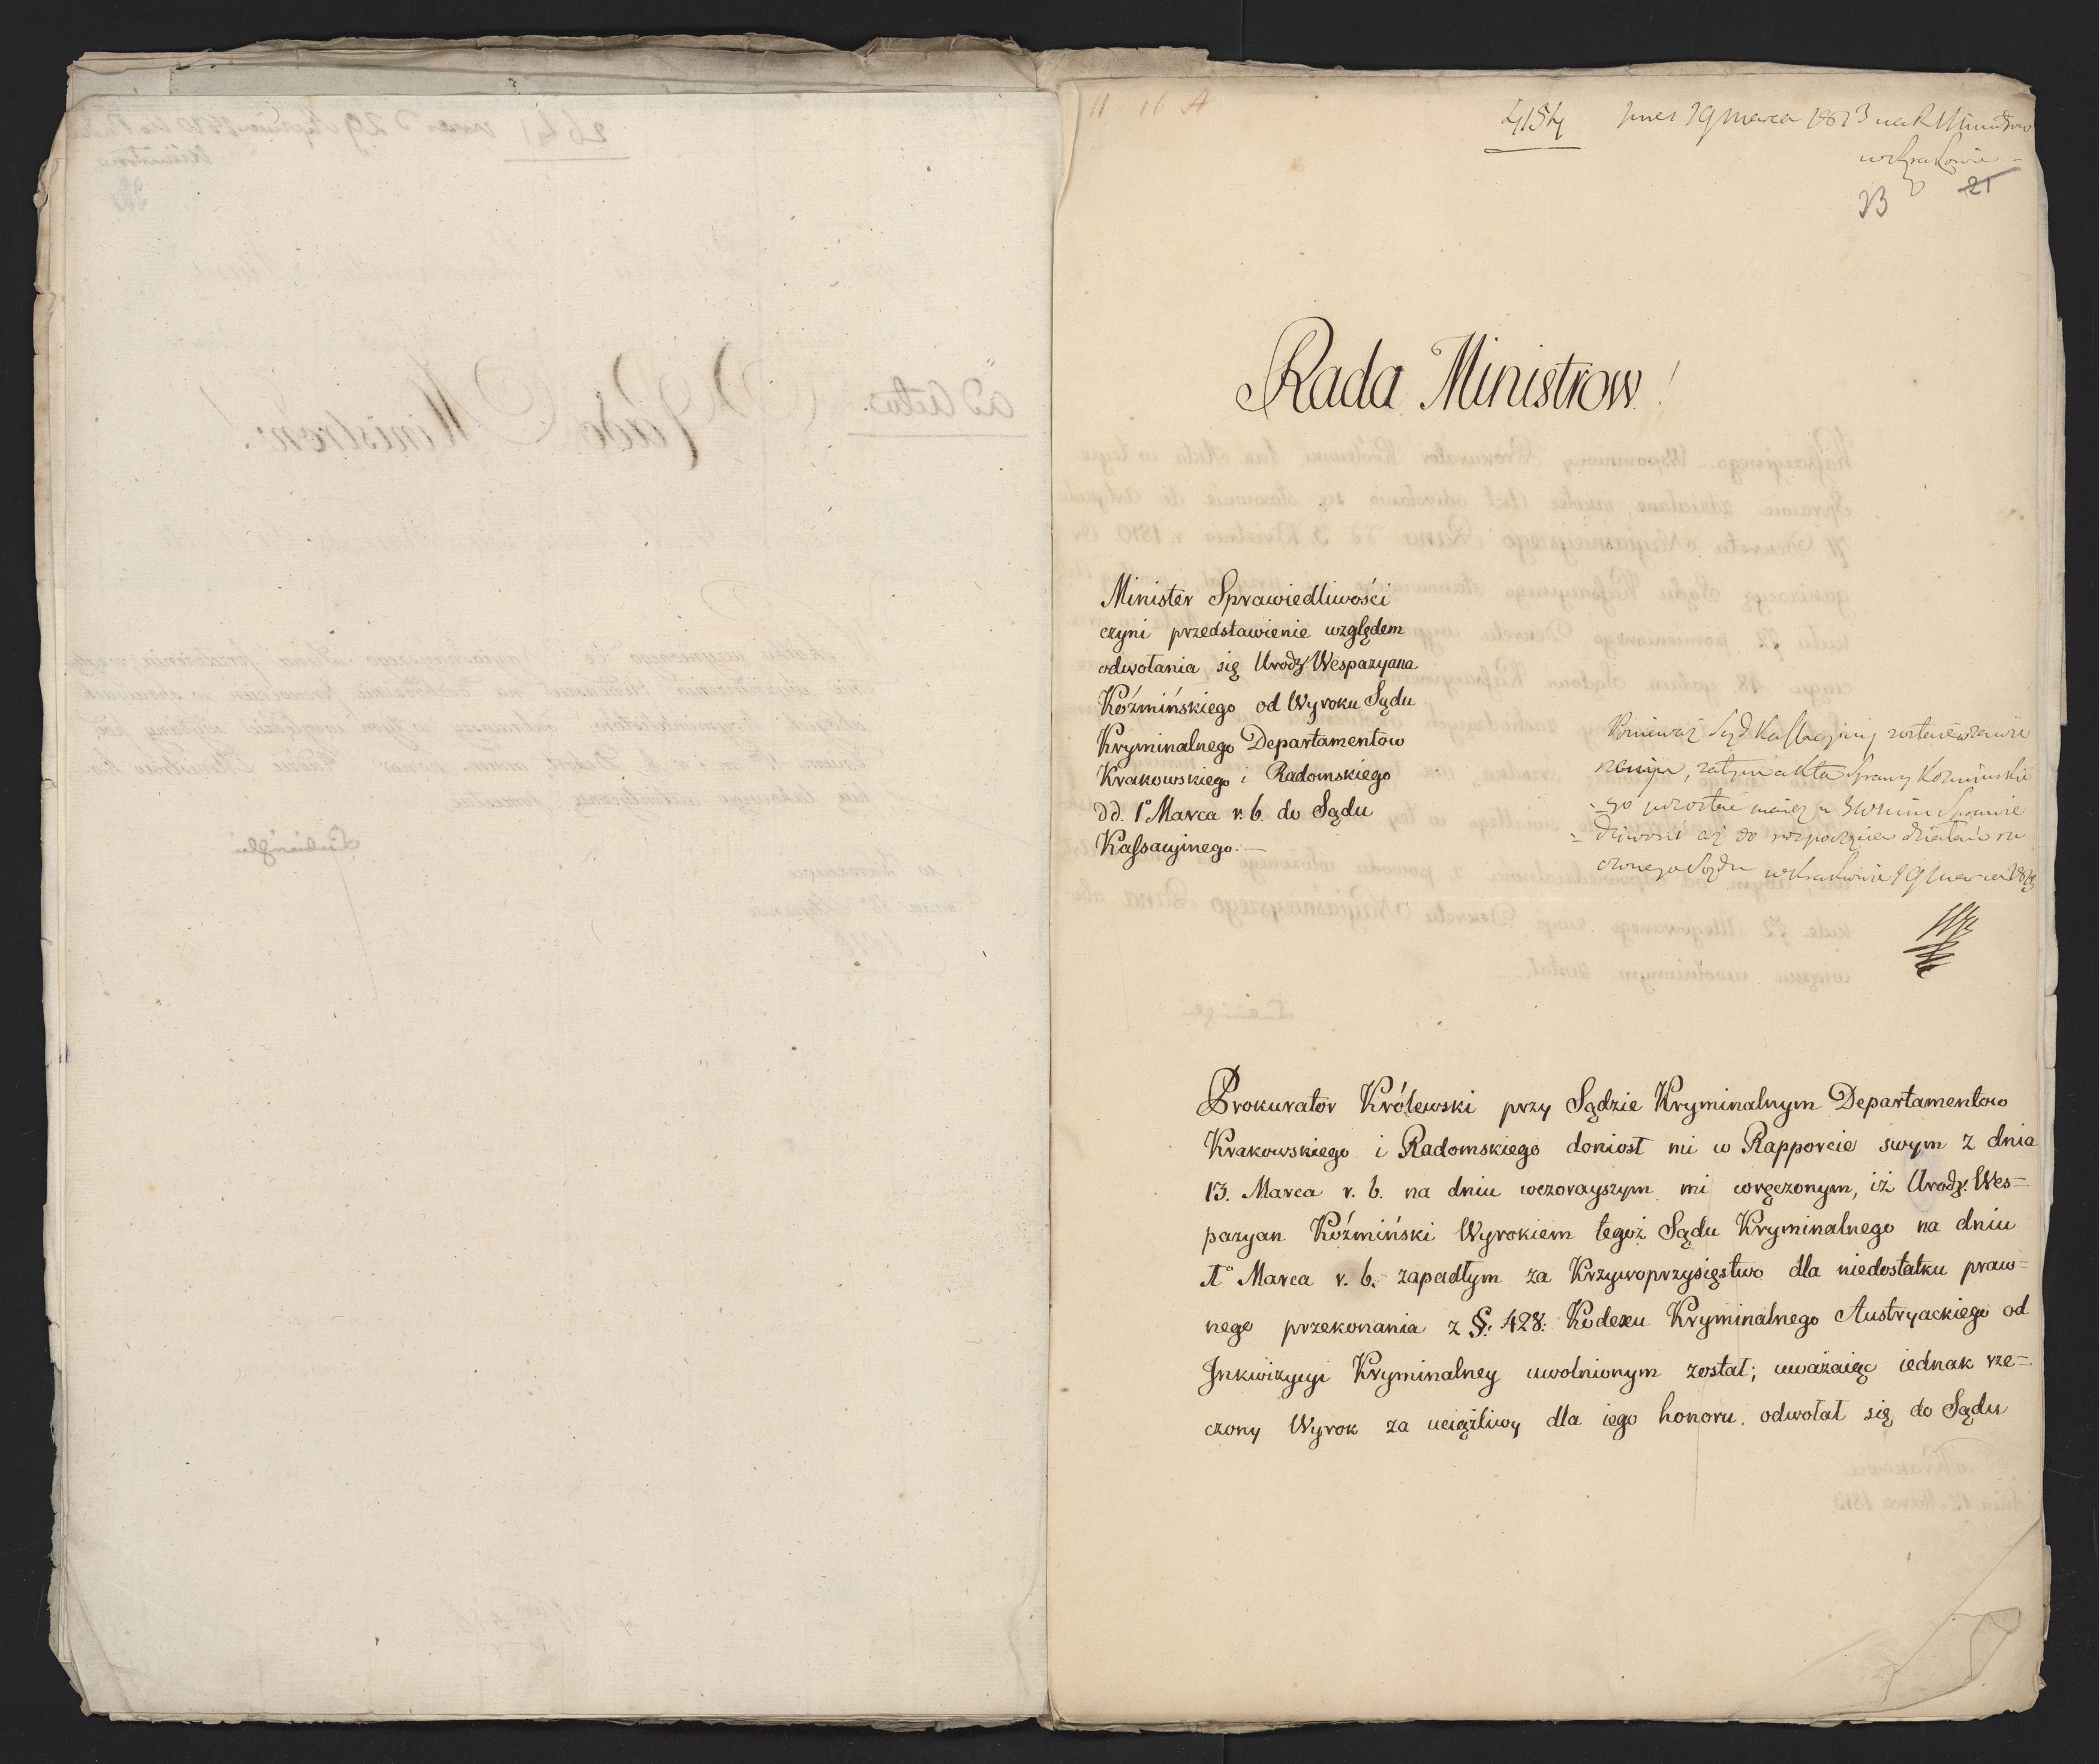 11 16 A
4154
19 Marca 1813 na R Ministrow
w Krakowie
23 21
Rada Ministrow!
Minister Sprawiedliwości
czyni przedstawienie względem
odwołania się Urodz. Wespazyana
Koźmińskiego od Wyroku Sądu
Kryminalnego Departamentow
Krakowskiego i Radomskiego
dd. 1° Marca r. b. do Sądu
Kassacyinego. —
Ponieważ Sąd Kassacyiny
akta Sprawy Kozminskie
=go pozostać maią w Sprawie
=dliwości aż do rozpoczęcia działań rze
czonego Sądu w Krakowie 19 Marca 1813
Prokurator Królewski przy Sądzie Kryminalnym Departamentow
Krakowskiego i Radomskiego doniosł mi w Rapporcie swym z dnia
13. Marca r. b. na dniu wczorayszym mi wręczonym, iż Urodz. Wes=
pazyan Koźmiński Wyrokiem tegoż Sądu Kryminalnego na dniu
1° Marca r. b. zapadłym za Krzywoprzysięstwo dla niedostatku praw=
nego przekonania z §: 428: Kodexu Kryminalnego Austryackiego od
Inkwizycyi Kryminalney uwolnionym został; uważaiąc iednak rze=
czony Wyrok za uciążliwy dla iego honoru, odwołał się do Sądu